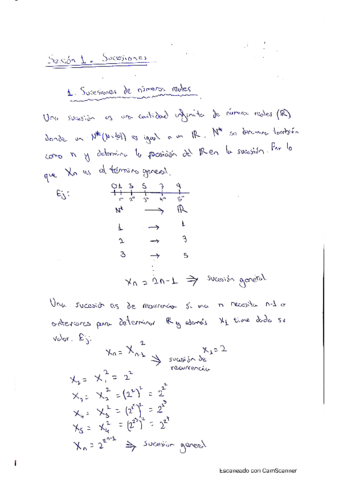 Sesión 1 - Sucesiones
1. Sucesiones de números reales
Una sucesión es una cantidad infinita de números reales (ℝ)
donde un N* (N-{0}) es igual a un ℝ. N* se denomina también
como n y determina la posición del ℝ en la sucesión. Por lo
que Xn es el término general.
Ej:
0 1 3 5 7 9
1º 2º 3º 4º 5º
N* → ℝ
1 → 1
2 → 3
3 → 5
⋮
Xn = 2n-1 ⇒ sucesión general
Una sucesión es de recurrencia si una n necesita n-1 o
anteriores para determinar ℝ y además X1 tiene dado su
valor. Ej:
Xn = Xn-1² ⇒ sucesión de recurrencia X1 = 2
X2 = X1² = 2²
X3 = X2² = (2²)² = 2^2²
X4 = X3² = (2^2²)² = 2^2³
X5 = X4² = (2^2³)² = 2^2⁴
Xn = 2^2^n-1 ⇒ sucesion general
Escaneado con CamScanner